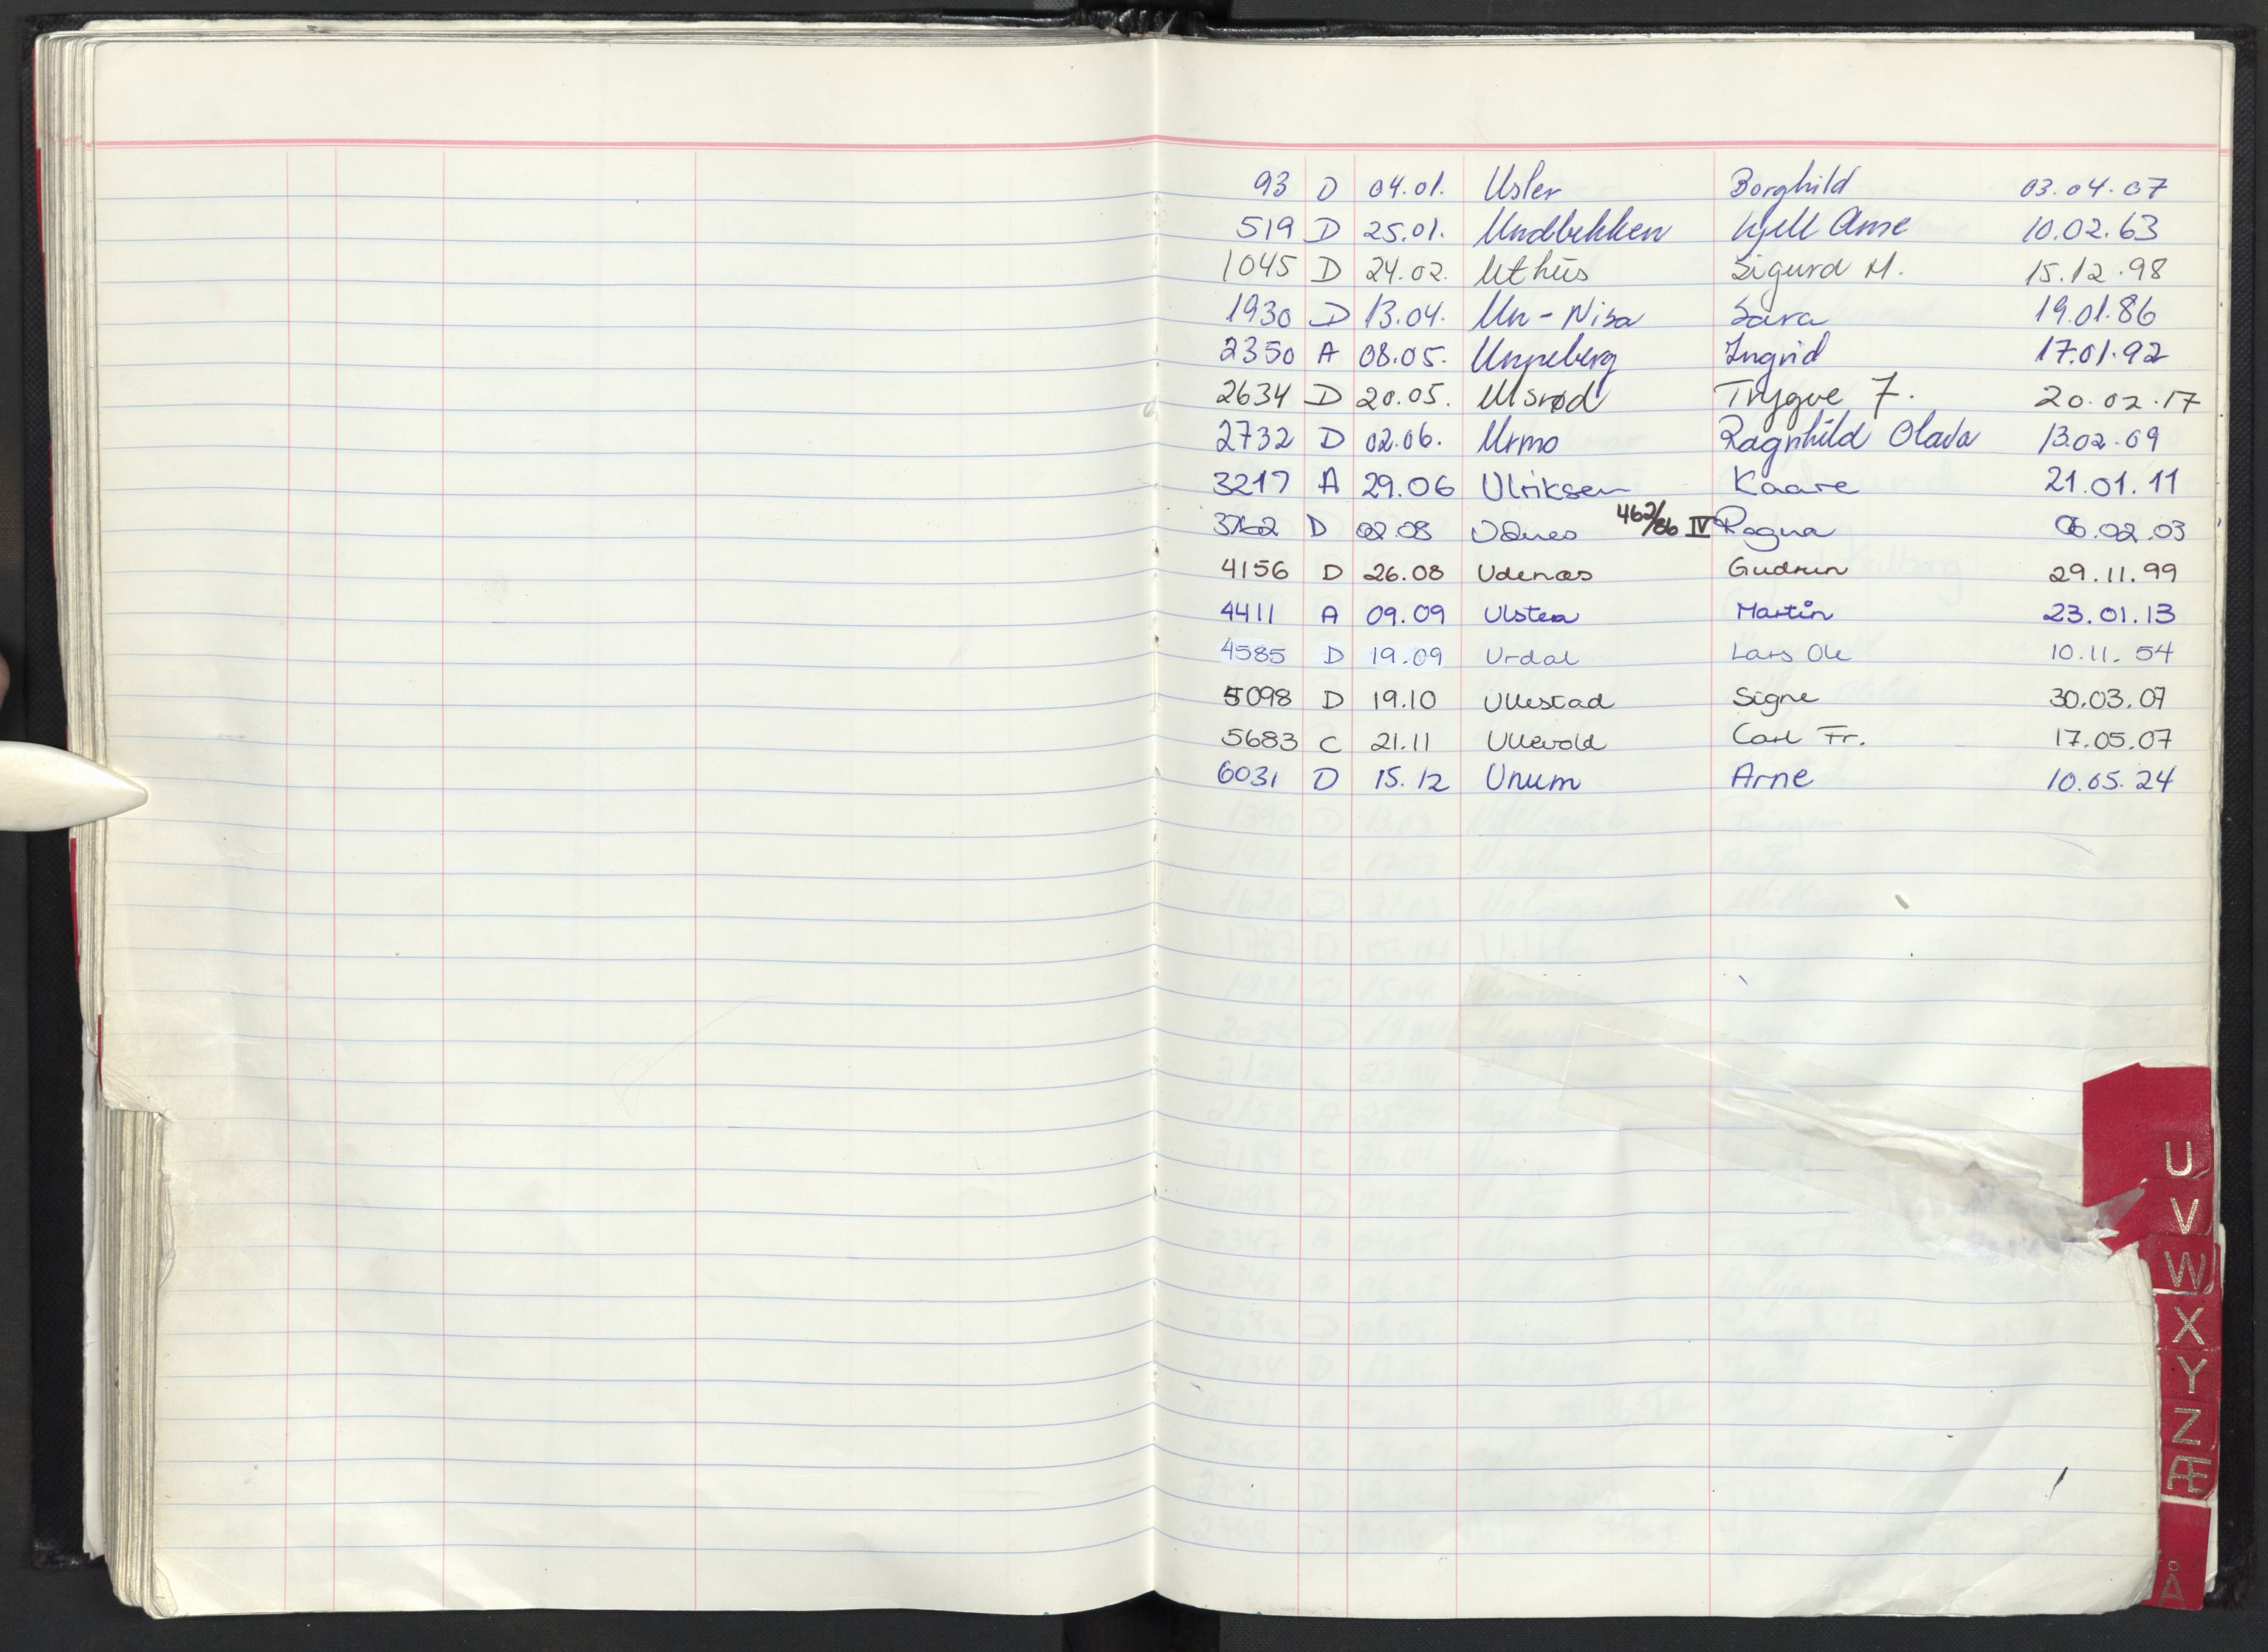 93 D 04.01. Usler Borghild 03.04.07
519 D 25.01. Undbekken Kjell Arne 10.02.63
1045 D 24.02. Uthus Sigurd M. 15.12.98
1930 D 13.04. Un-Nisa Sara 19.01.86
2350 A 08.05. Unneberg Ingrid 17.01.92
2634 D 20.05. Ulsrød Trygve F. 20.02.17
2732 D 02.06. Urmo Ragnhild Olava 13.02.09
3217 A 29.06 Ulriksen Kaare 21.01.11
3762 D 02.08 Udnes 462/86 IV Ragna 06.02.03
4156 D 26.08 Udenæs Gudrun 29.11.99
4411 A 09.09 Ulstea Martin 23.01.13
4585 D 19.09 Urdal Lars Ole 10.11.54
5098 D 19.10 Ullestad Signe 30.03.07
5683 C 21.11 Ullevold Carl Fr. 17.05.07
6031 D 15.12 Unum Arne 10.05.24
U
V
W
X
Y
Z
Æ
Å